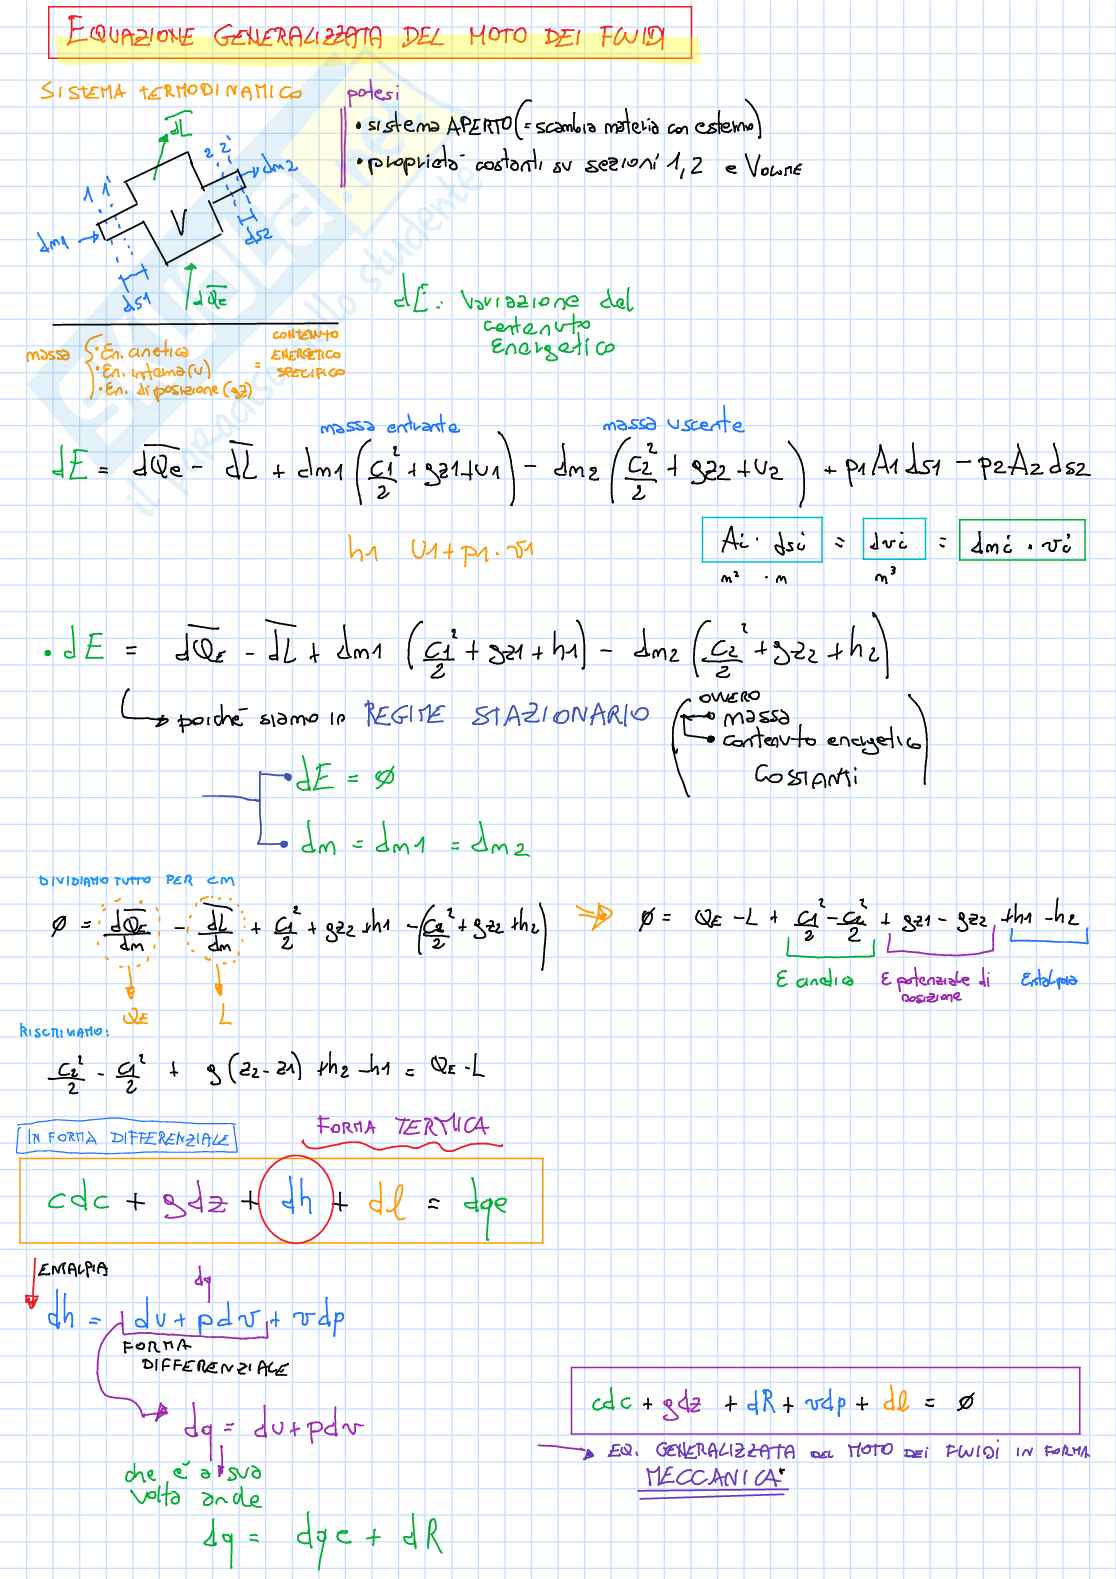 EQUAZIONE GENERALIZZATA DEL MOTO DEI FLUIDI
SISTEMA TERMODINAMICO
potesi
• sistema APERTO (= scambia materia con esterno)
• proprietà costanti su sezioni 1, 2 e VOLUME
dL
1 1'
2 2'
dm2
V
dm1
ds2
ds1
dQE
dE: variazione del
contenuto
energetico
massa
• En. cinetica
• En. interna (u)
• En. di posizione (gz)
=
CONTENUTO
ENERGETICO
SPECIFICO
massa entrante
massa uscente
dE = dQe - dL + dm1 (c1²/2 + gz1 + u1) - dm2 (c2²/2 + gz2 + u2) + p1A1ds1 - p2A2ds2
h1 u1 + p1 · v1
Ai · dsi = dvi = dmi · vi
m² · m m³
• dE = dQE - dL + dm1 (c1²/2 + gz1 + h1) - dm2 (c2²/2 + gz2 + h2)
poiché siamo in REGIME STAZIONARIO
OVVERO
massa
contenuto energetico
COSTANTI
dE = ∅
dm = dm1 = dm2
DIVIDIAMO TUTTO PER dm
∅ = dQE/dm - dL/dm + c1²/2 + gz2 + h1 - (c2²/2 + gz2 + h2) ⇒ ∅ = QE - L + c1²/2 - c2²/2 + gz1 - gz2 + h1 - h2
QE L
E cinetica
E potenziale di
posizione
Entalpia
RISCRIVIAMO:
c2²/2 - c1²/2 + g (z2 - z1) + h2 - h1 = QE - L
IN FORMA DIFFERENZIALE
FORMA TERMICA
cdc + gdz + dh + dl = dqe
ENTALPIA
dq
dh = du + pdv + vdp
FORMA
DIFFERENZIALE
dq = du + pdv
che è a sua
volta anche
dq = dqe + dR
cdc + gdz + dR + vdp + dl = ∅
EQ. GENERALIZZATA DEL MOTO DEI FLUIDI IN FORMA
MECCANICA